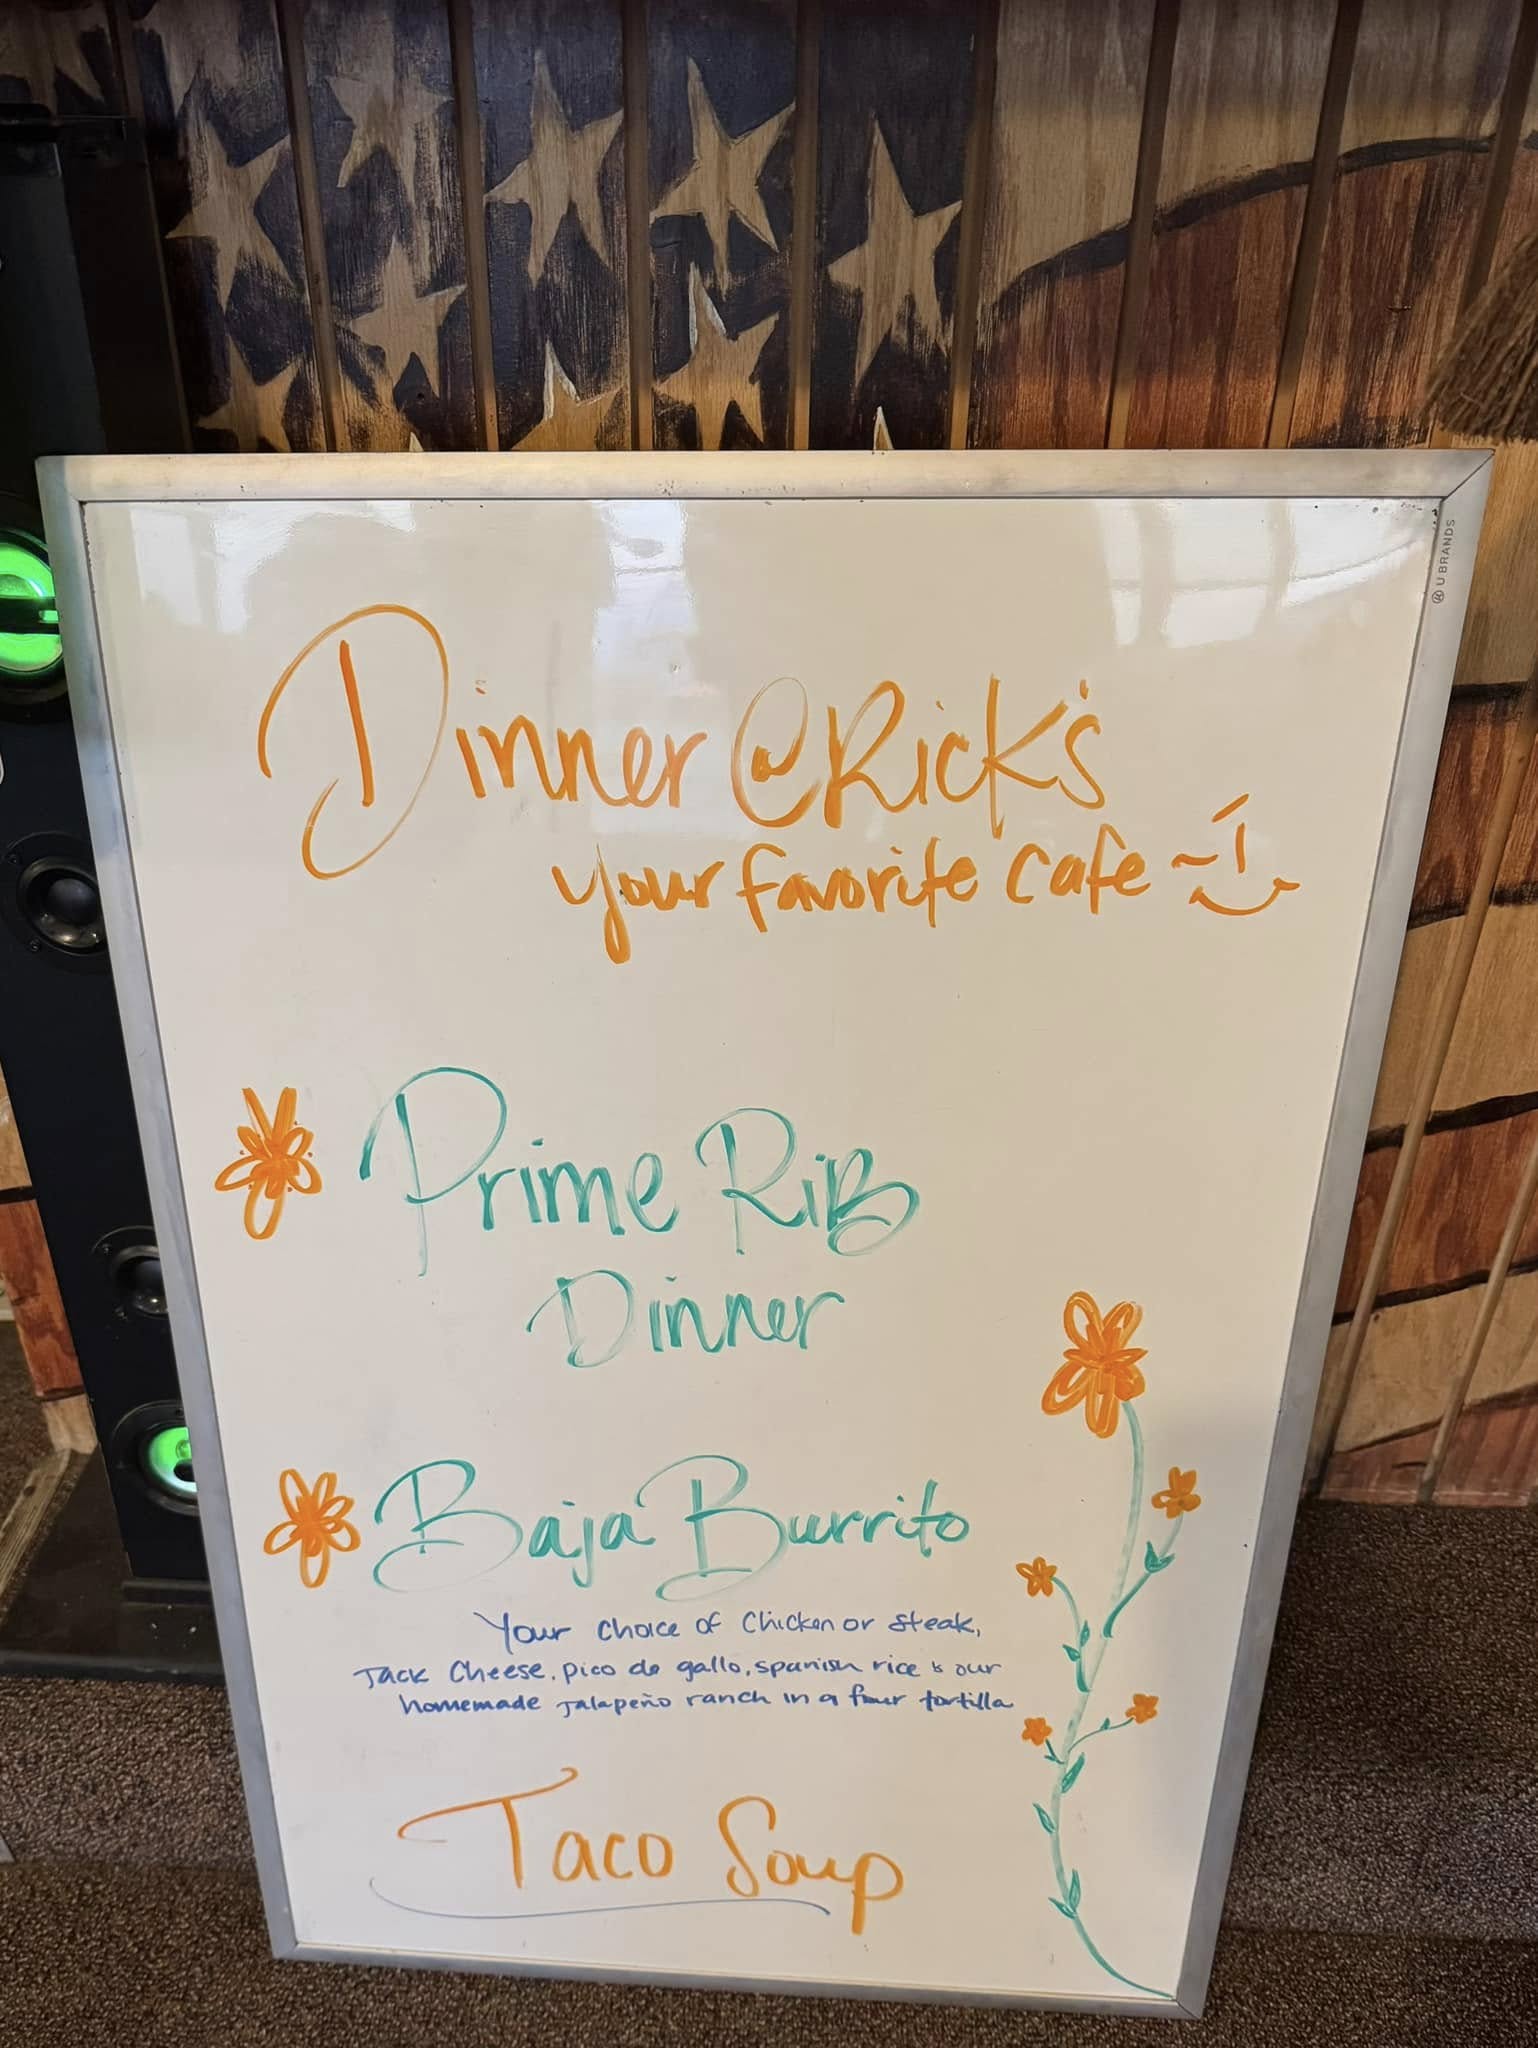 U BRANDS
Dinner @ Rick's
your favorite cafe
Prime RiB
Dinner
Baja Burrito
Your choice of Chicken or steak,
Jack Cheese, pico de gallo, spanish rice & our
homemade jalapeño ranch in a flour tortilla
Taco Soup